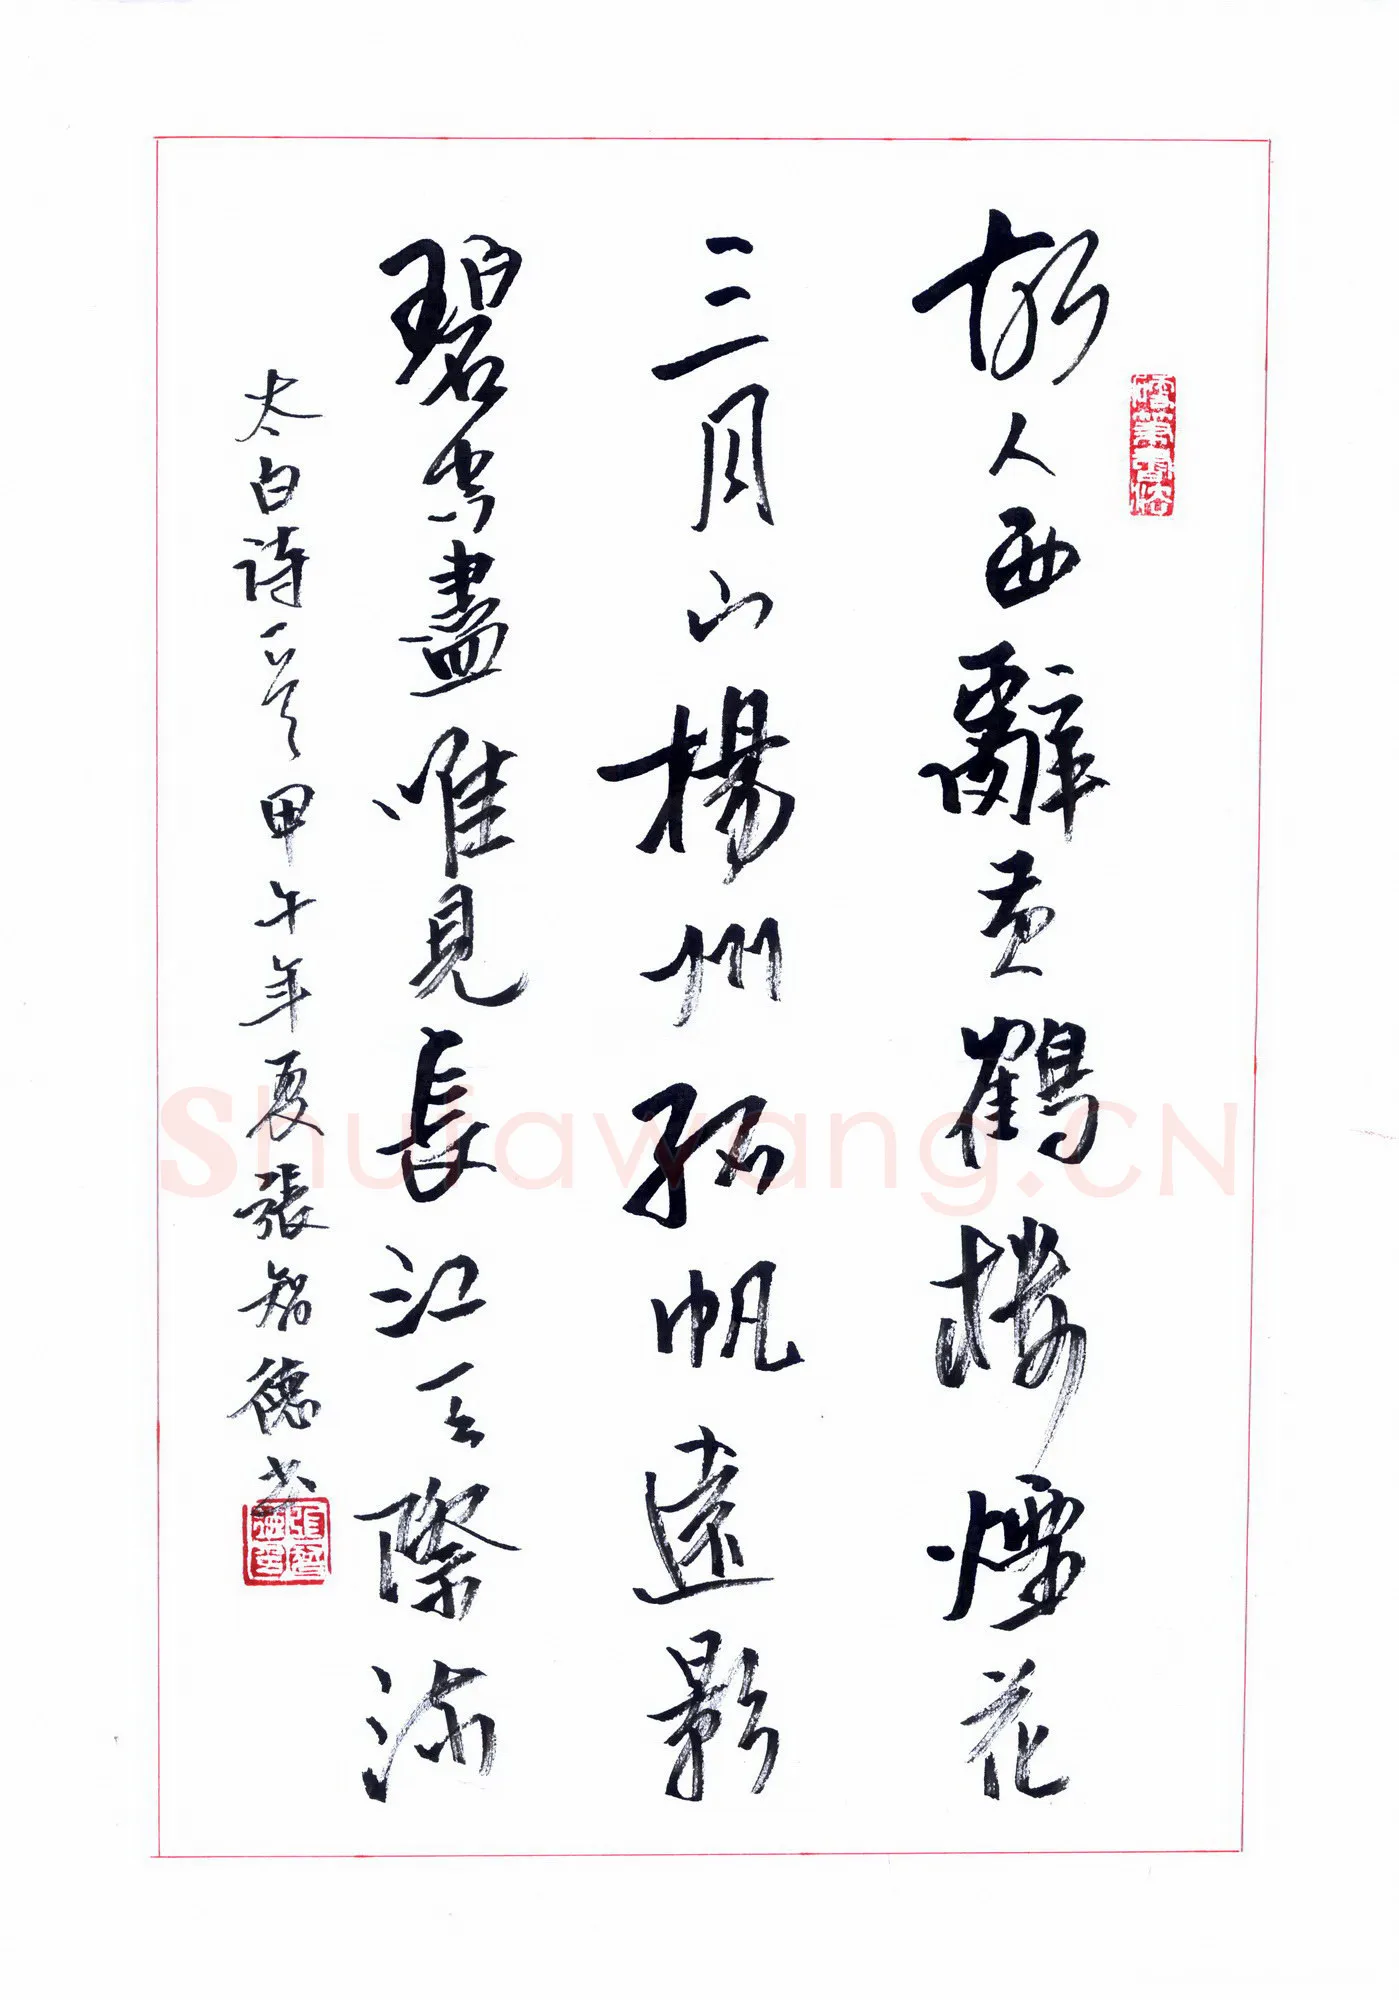 故人西辭黄鶴楼煙花
三月山楊州孤帆遠影
碧空盡唯見長江天際流
太白詩一首甲午年夏張智德书
Shufawang.CN